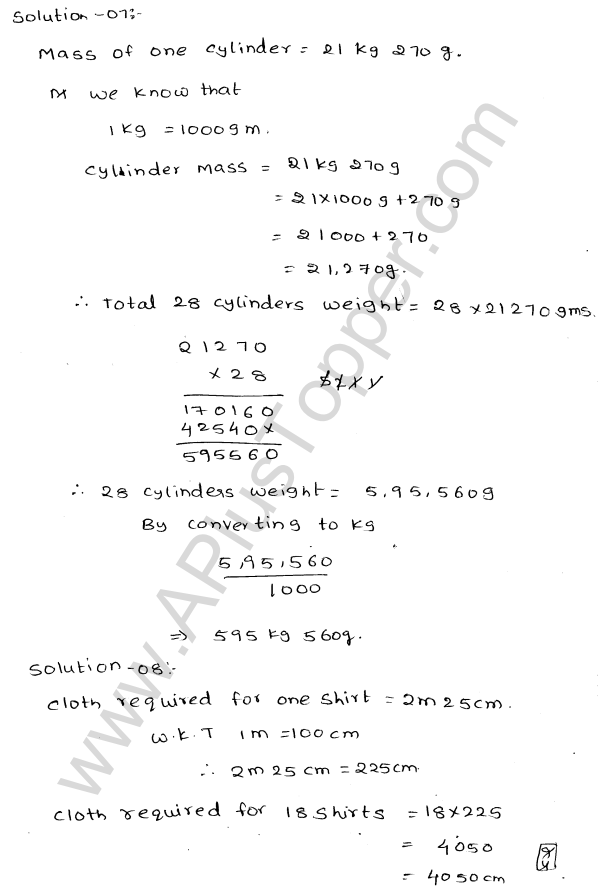 Solution -07:-
Mass of one cylinder = 21 kg 270 g.
we know that
1 kg = 1000 gm.
cylinder mass = 21 kg 270 g
= 21×1000 g + 270 g
= 21000 + 270
= 21,270g.
∴ Total 28 cylinders weight = 28 × 21270 gms.
21270
× 28
170160
42540×
595560
∴ 28 cylinders weight = 5,95,560g
By converting to kg
5,95,560
1000
⇒ 595 kg 560g.
Solution -08:-
cloth required for one shirt = 2m 25cm.
W.K.T 1m = 100 cm
∴ 2m 25 cm = 225cm.
cloth required for 18 shirts = 18×225
= 4050
= 4050 cm
www.APlusTopper.com